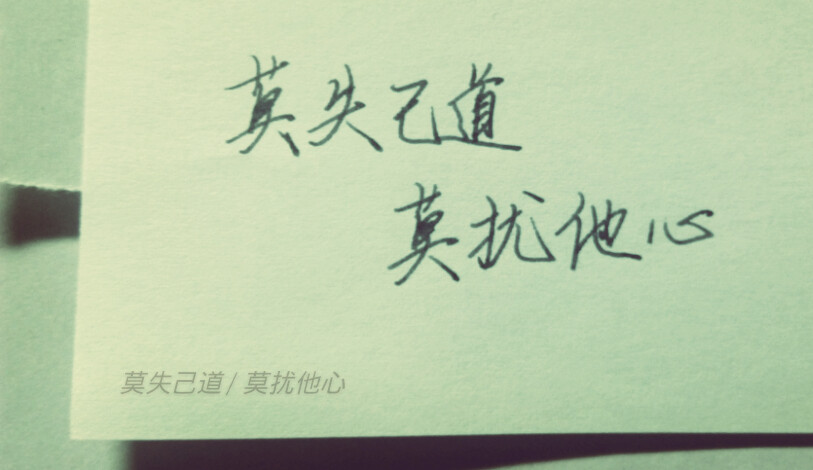 莫失己道
莫扰他心
莫失己道 / 莫扰他心